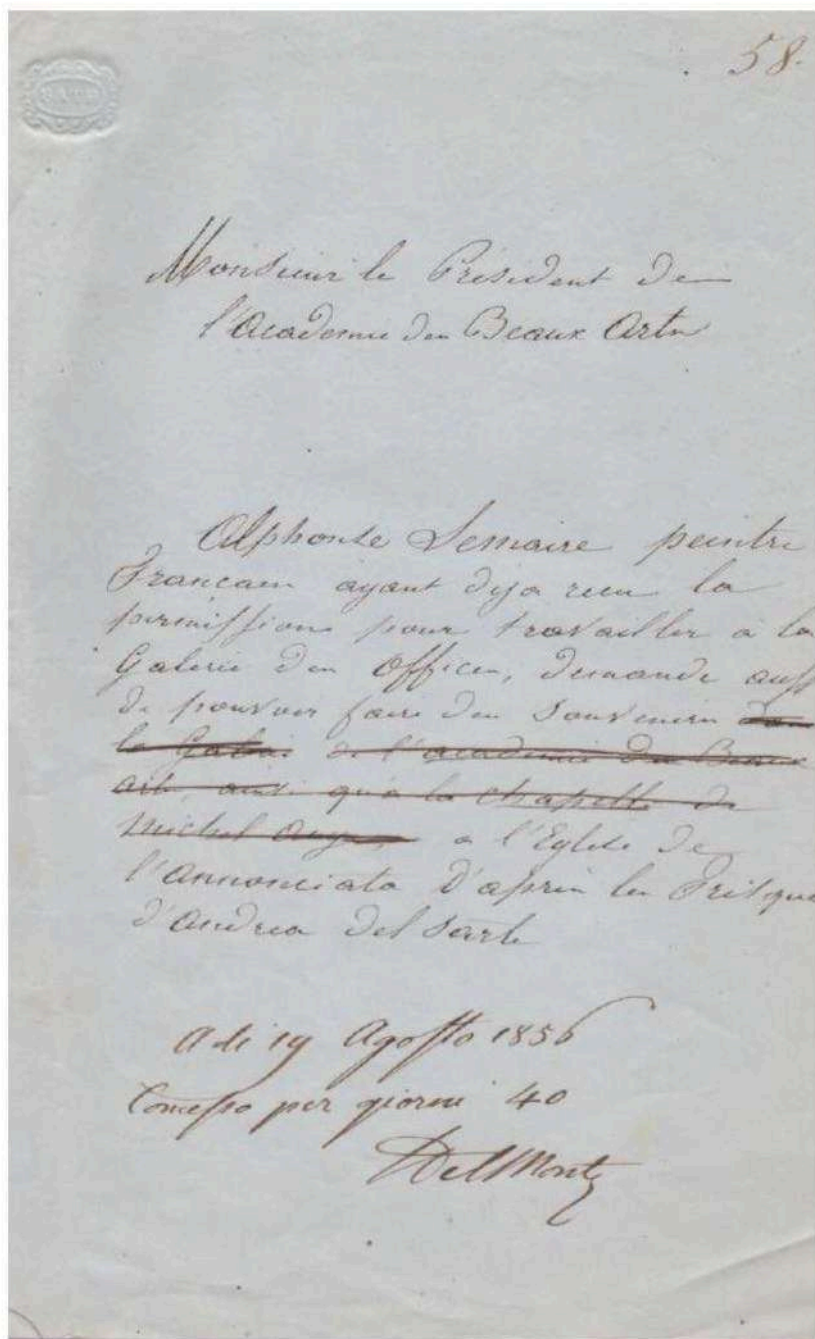 58.
BATH
Monsieur le Président de
l'Academie des Beaux Arts
Alphonse Lemaire peintre
Francais ayant deja recu la
permission pour travailler à la
Galerie des Offices, demande auss
de pouvoir faire des Souvenirs dans
la Galerie de l'academie des Beaux
arts, aussi qu'à la chapelle de
Michel Ange a l'Eglise de
l'Annonciata d'après les Fresques
d'Andrea del Sarte
A dì 19 Agosto 1856
Concesso per giorni 40
Del Monte